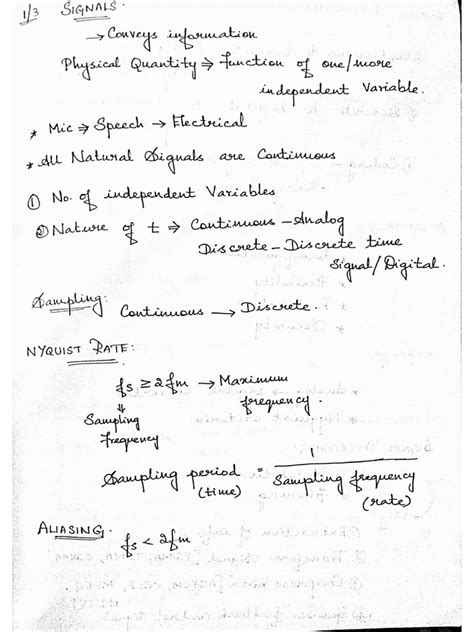 1/3 SIGNALS.
→ Conveys information
Physical Quantity ⇒ Function of one/more
independent Variable.
* Mic ⇒ Speech → Electrical
* All Natural Signals are Continuous
① No. of independent Variables
② Nature of t ⇒ Continuous – Analog
Discrete – Discrete time
Signal/Digital.
Sampling: Continuous → Discrete.
NYQUIST RATE:
fs ≥ 2fm → Maximum
frequency.
⇓
Sampling
Frequency
Sampling period (time) = 1 / Sampling frequency (rate)
ALIASING.
fs < 2fm